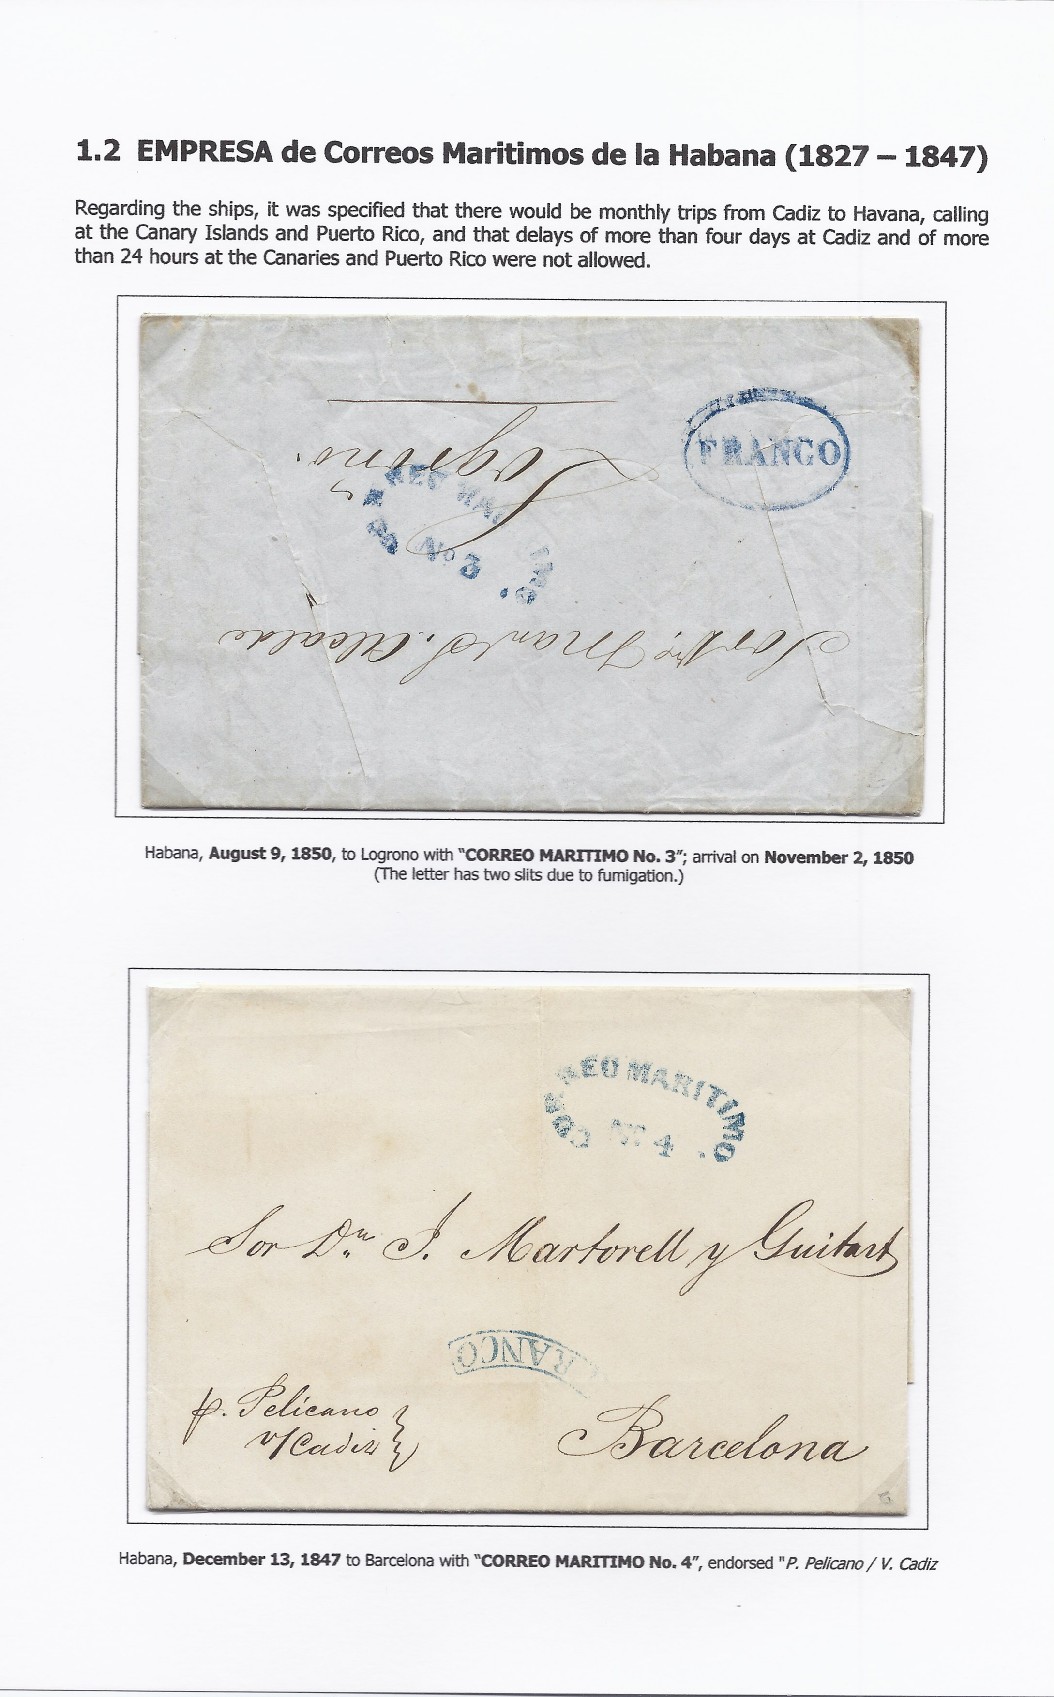 1.2 EMPRESA de Correos Maritimos de la Habana (1827 – 1847)
Regarding the ships, it was specified that there would be monthly trips from Cadiz to Havana, calling
at the Canary Islands and Puerto Rico, and that delays of more than four days at Cadiz and of more
than 24 hours at the Canaries and Puerto Rico were not allowed.
FRANCO
Logrono
No 3
Sor Dn Man S. Alcalde
Habana, August 9, 1850, to Logrono with "CORREO MARITIMO No. 3"; arrival on November 2, 1850
(The letter has two slits due to fumigation.)
CORREO MARITIMO
No. 4
Sor Dn J. Martorell y Guitart
FRANCO
p. Pelicano
v/Cadiz
Barcelona
Habana, December 13, 1847 to Barcelona with "CORREO MARITIMO No. 4", endorsed "P. Pelicano / V. Cadiz